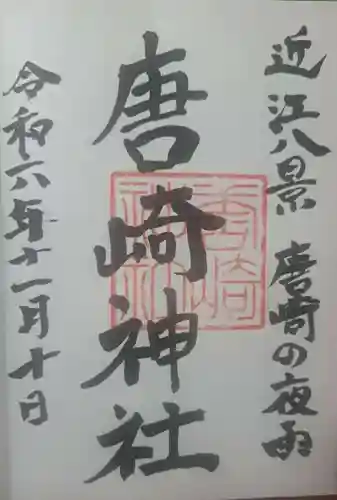 近江八景 唐崎の夜雨
唐崎神社
唐崎神社
令和六年十一月十日